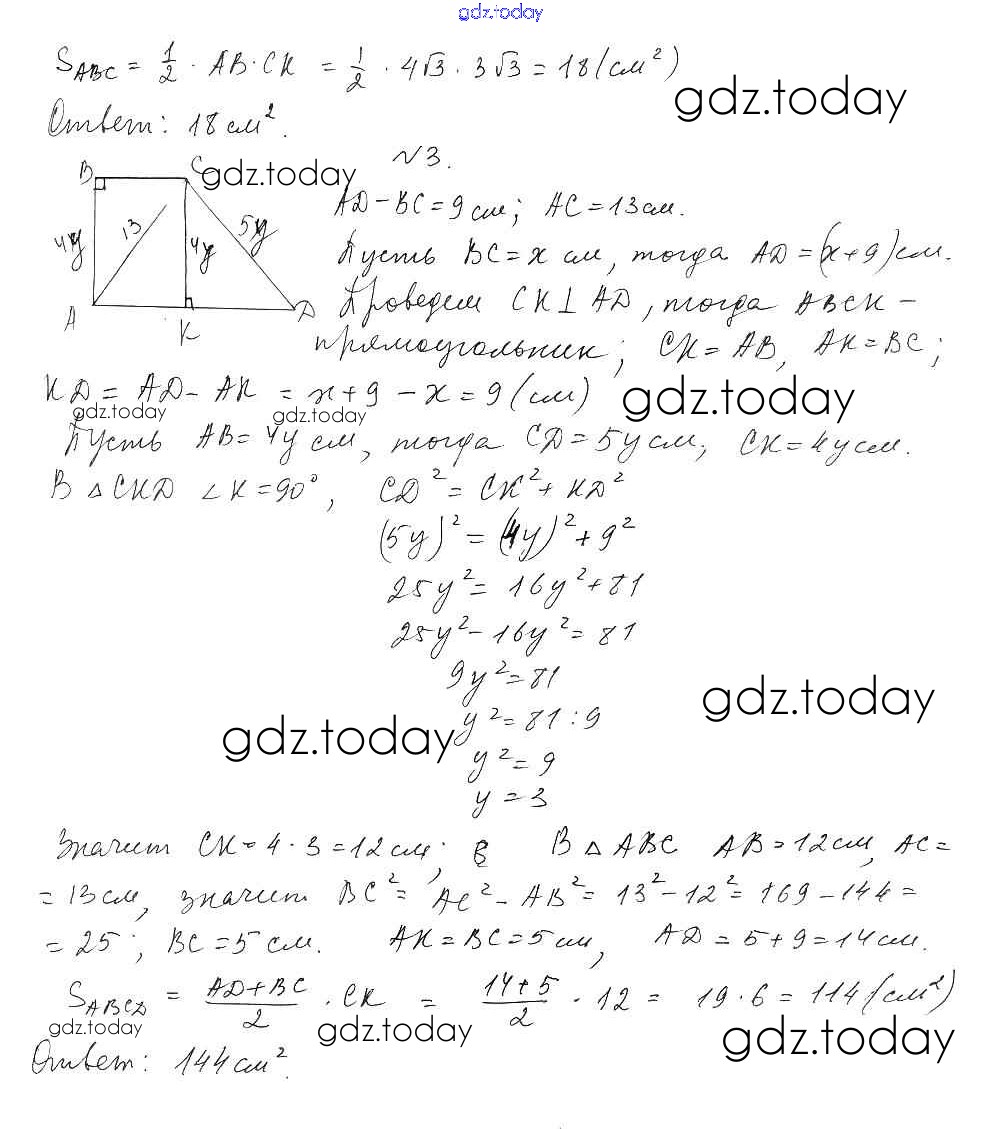 gdz.today
S_ABC = 1/2 · AB · CK = 1/2 · 4√3 · 3√3 = 18 (см²)
gdz.today
Ответ: 18 см².
N 3.
B C gdz.today
AD - BC = 9 см; AC = 13 см.
4y 13 4y 5y
Пусть BC = x см, тогда AD = (x+9) см.
A K D
Проведем CK ⊥ AD, тогда ABCK -
прямоугольник; CK = AB, AK = BC;
KD = AD - AK = x + 9 - x = 9 (см)
gdz.today gdz.today gdz.today
Пусть AB = 4y см, тогда CD = 5y см, CK = 4y см.
В △ CKD ∠K = 90°, CD² = CK² + KD²
(5y)² = (4y)² + 9²
25y² = 16y² + 81
25y² - 16y² = 81
9y² = 81
gdz.today
y² = 81 : 9
gdz.today
y² = 9
y = 3
Значит CK = 4 · 3 = 12 см; В △ ABC AB = 12 см, AC =
= 13 см, значит BC² = AC² - AB² = 13² - 12² = 169 - 144 =
= 25; BC = 5 см. AK = BC = 5 см, AD = 5 + 9 = 14 см.
S_ABCD = (AD+BC)/2 · CK = (14+5)/2 · 12 = 19 · 6 = 114 (см²)
gdz.today gdz.today gdz.today
Ответ: 144 см².